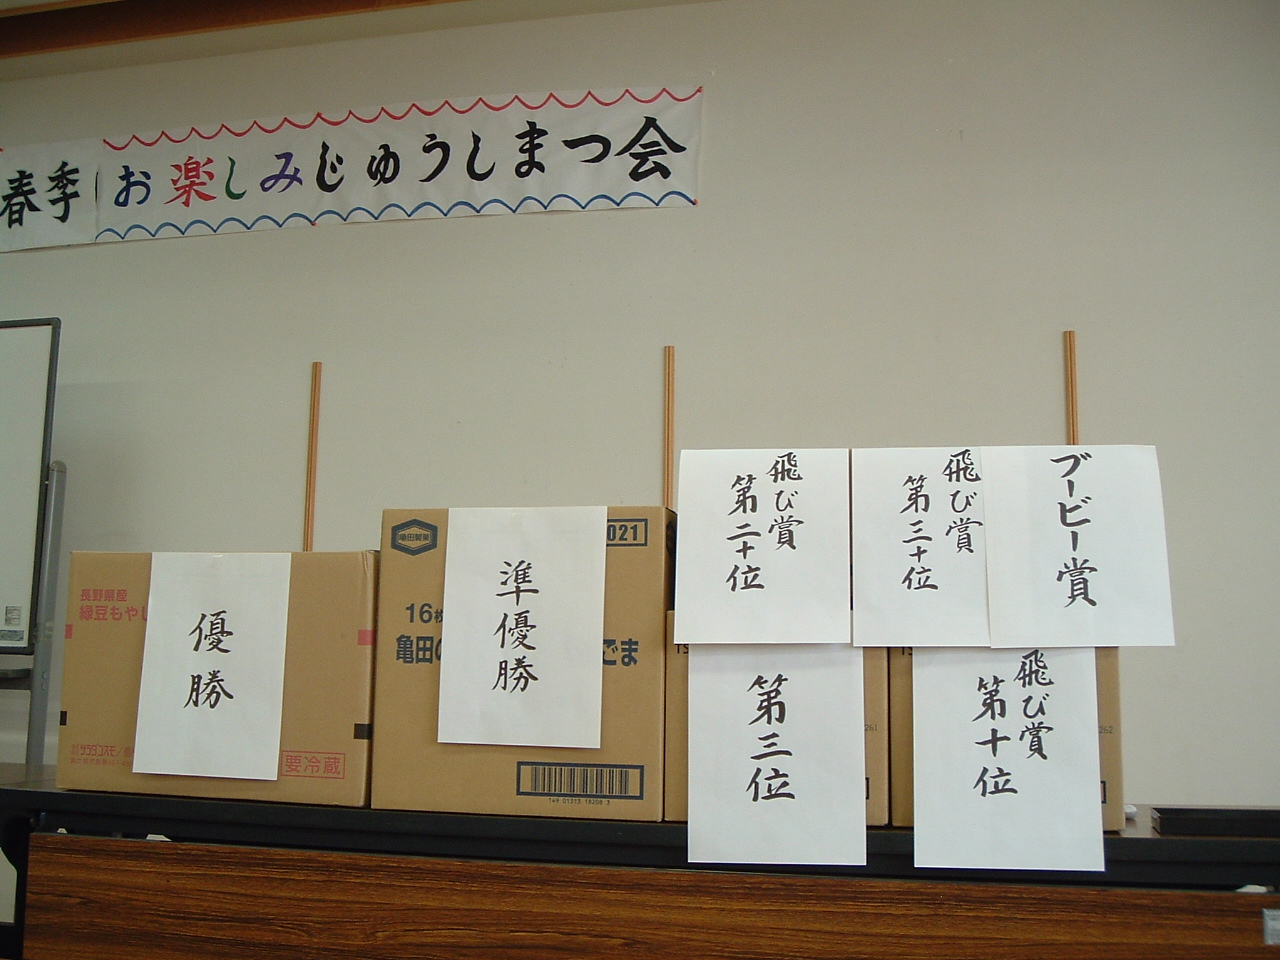 春季 お楽しみじゅうしまつ会
優勝
長野県産
緑豆もやし
要冷蔵
準優勝
亀田製菓
021
16枚
亀田の
ごま
149 01313 18208 3
飛び賞
第二十位
飛び賞
第三十位
ブービー賞
第三位
飛び賞
第十位
TS
261
262